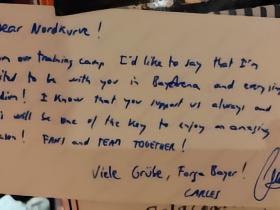 ear Nordkurve!
om our training camp I'd like to say that I'm
ited to be with you in BayArena and every sing
dium! I know that you support us always and
s will be one of the key to enjoy an amazing
son! FANS and TEAM TOGETHER!
Viele Grüße, Forza Bayer!
CARLES